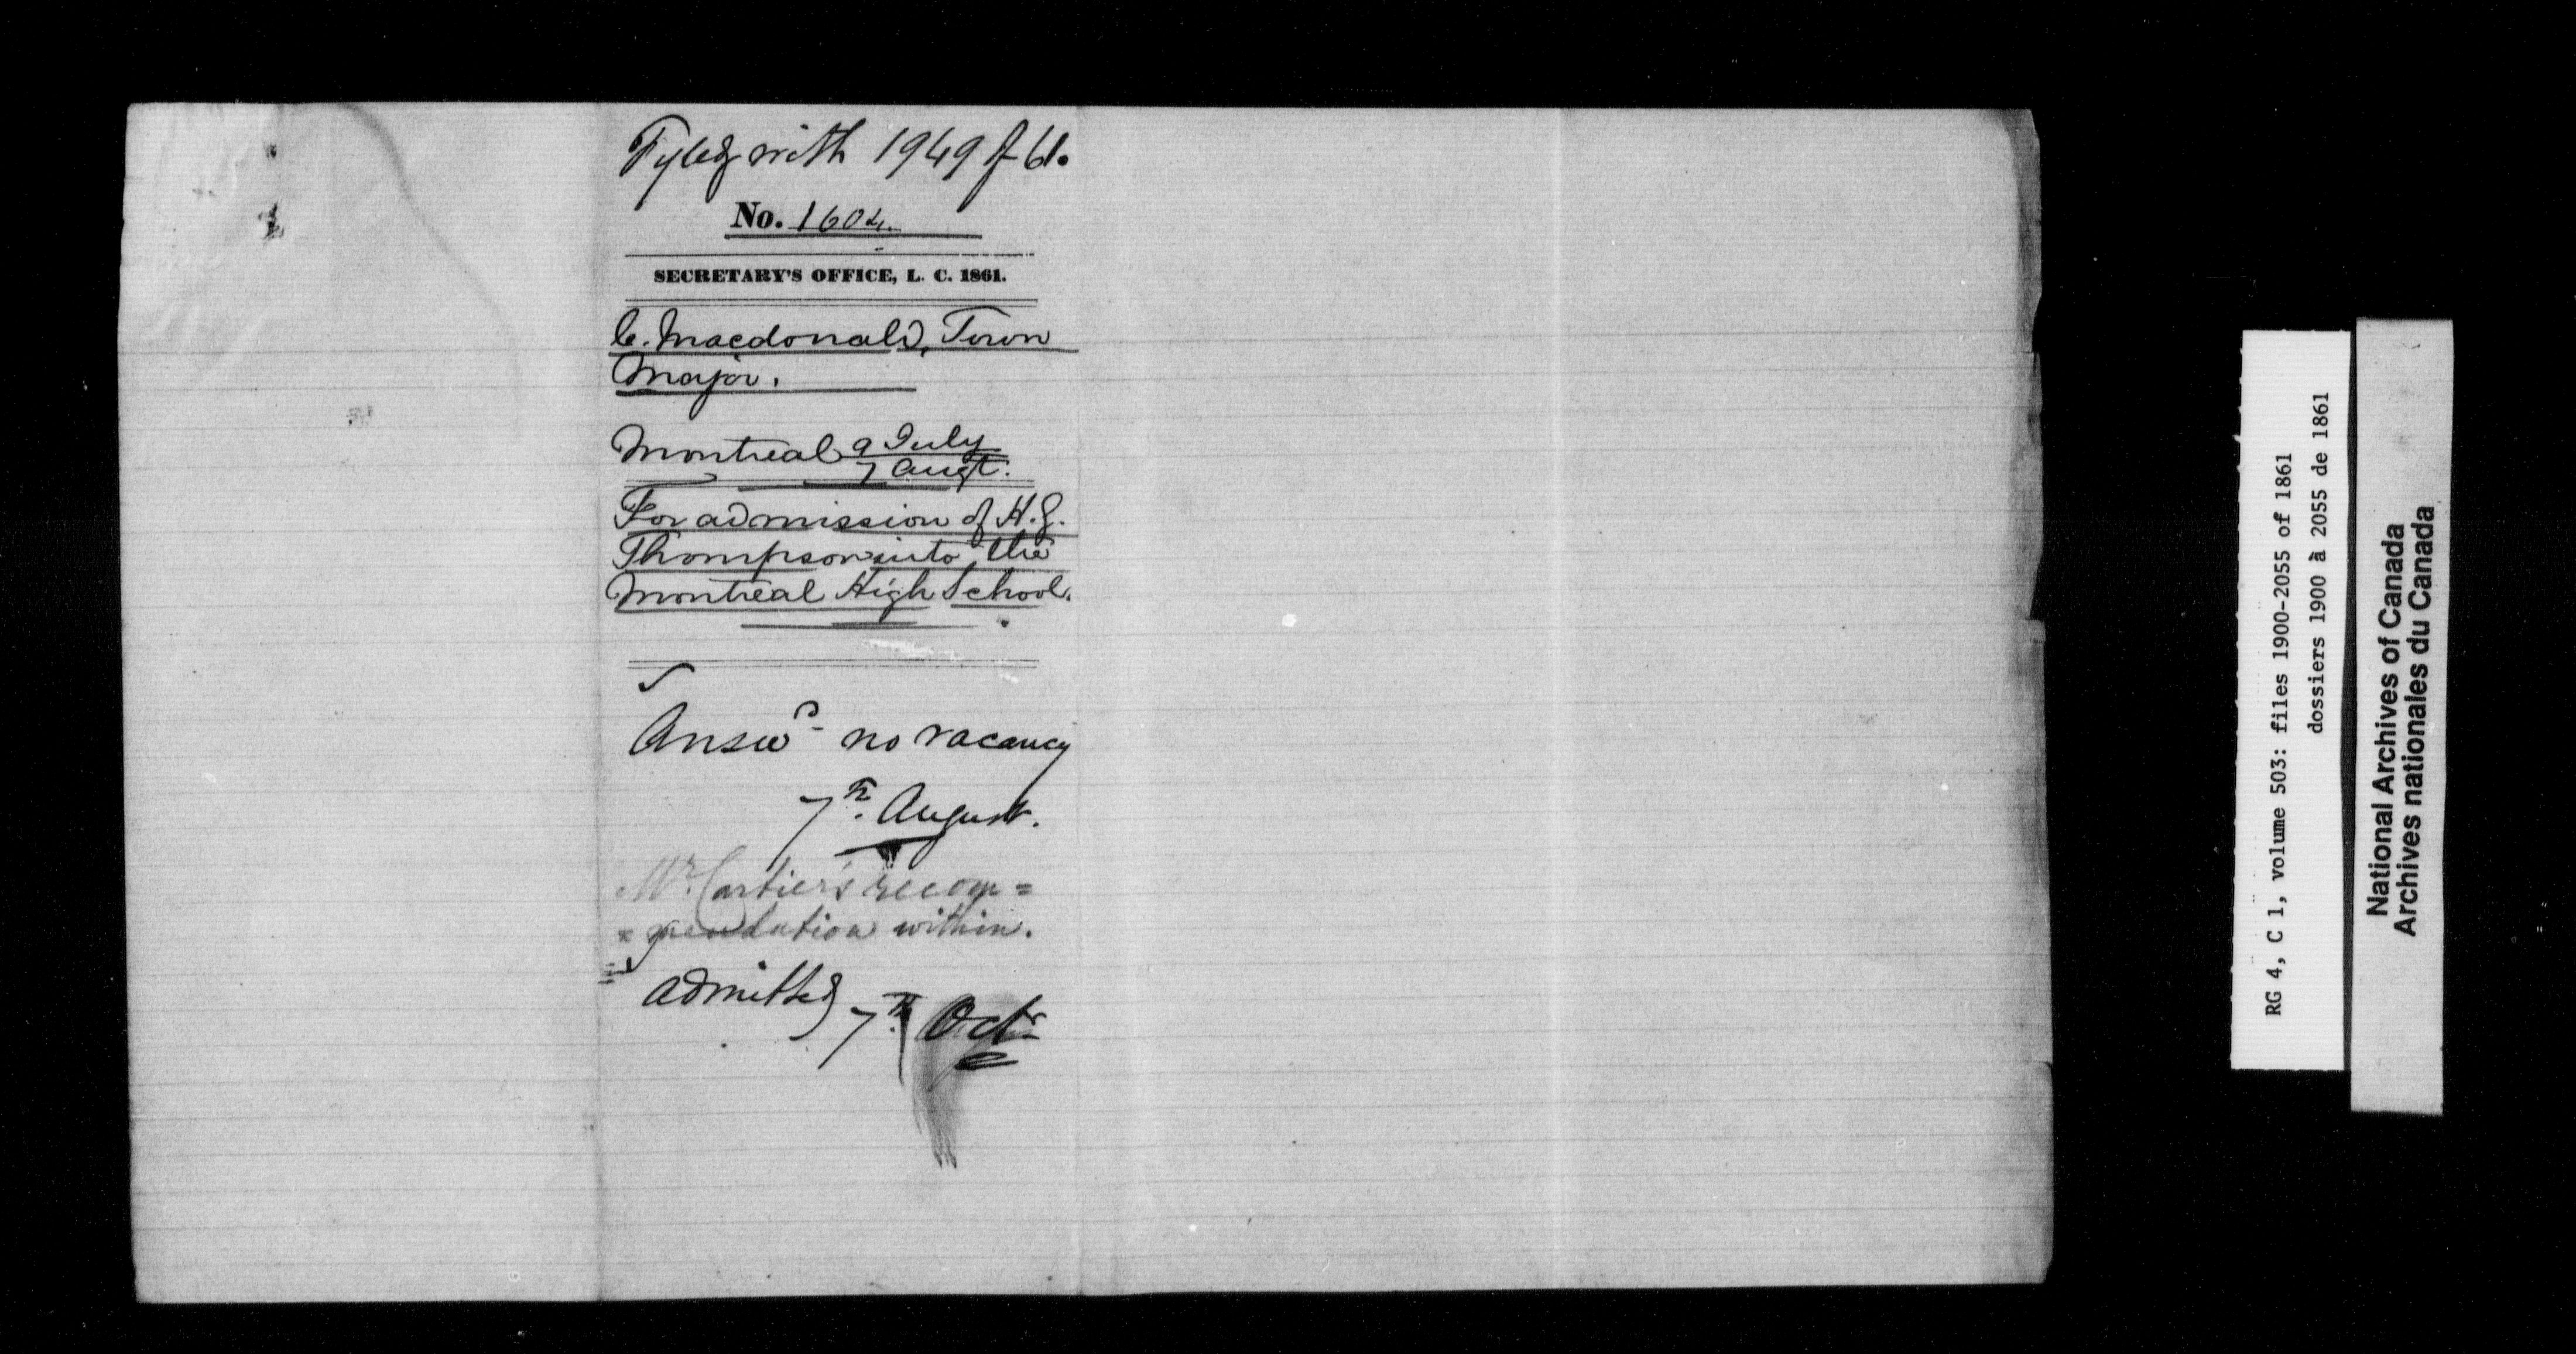 Fyled with 1949 of 61.
No. 1604.
SECRETARY'S OFFICE, L. C. 1861.
C. Macdonald, Town
Major.
Montreal 9 July
7 Augt.
For admission of H. G.
Thompson into the
Montreal High School.
Answd no vacancy
7th August.
Mr. Cartier's recom=
=mendation within.
Admitted
7th Octr
RG 4, C 1, volume 503: files 1900-2055 of 1861
dossiers 1900 à 2055 de 1861
National Archives of Canada
Archives nationales du Canada